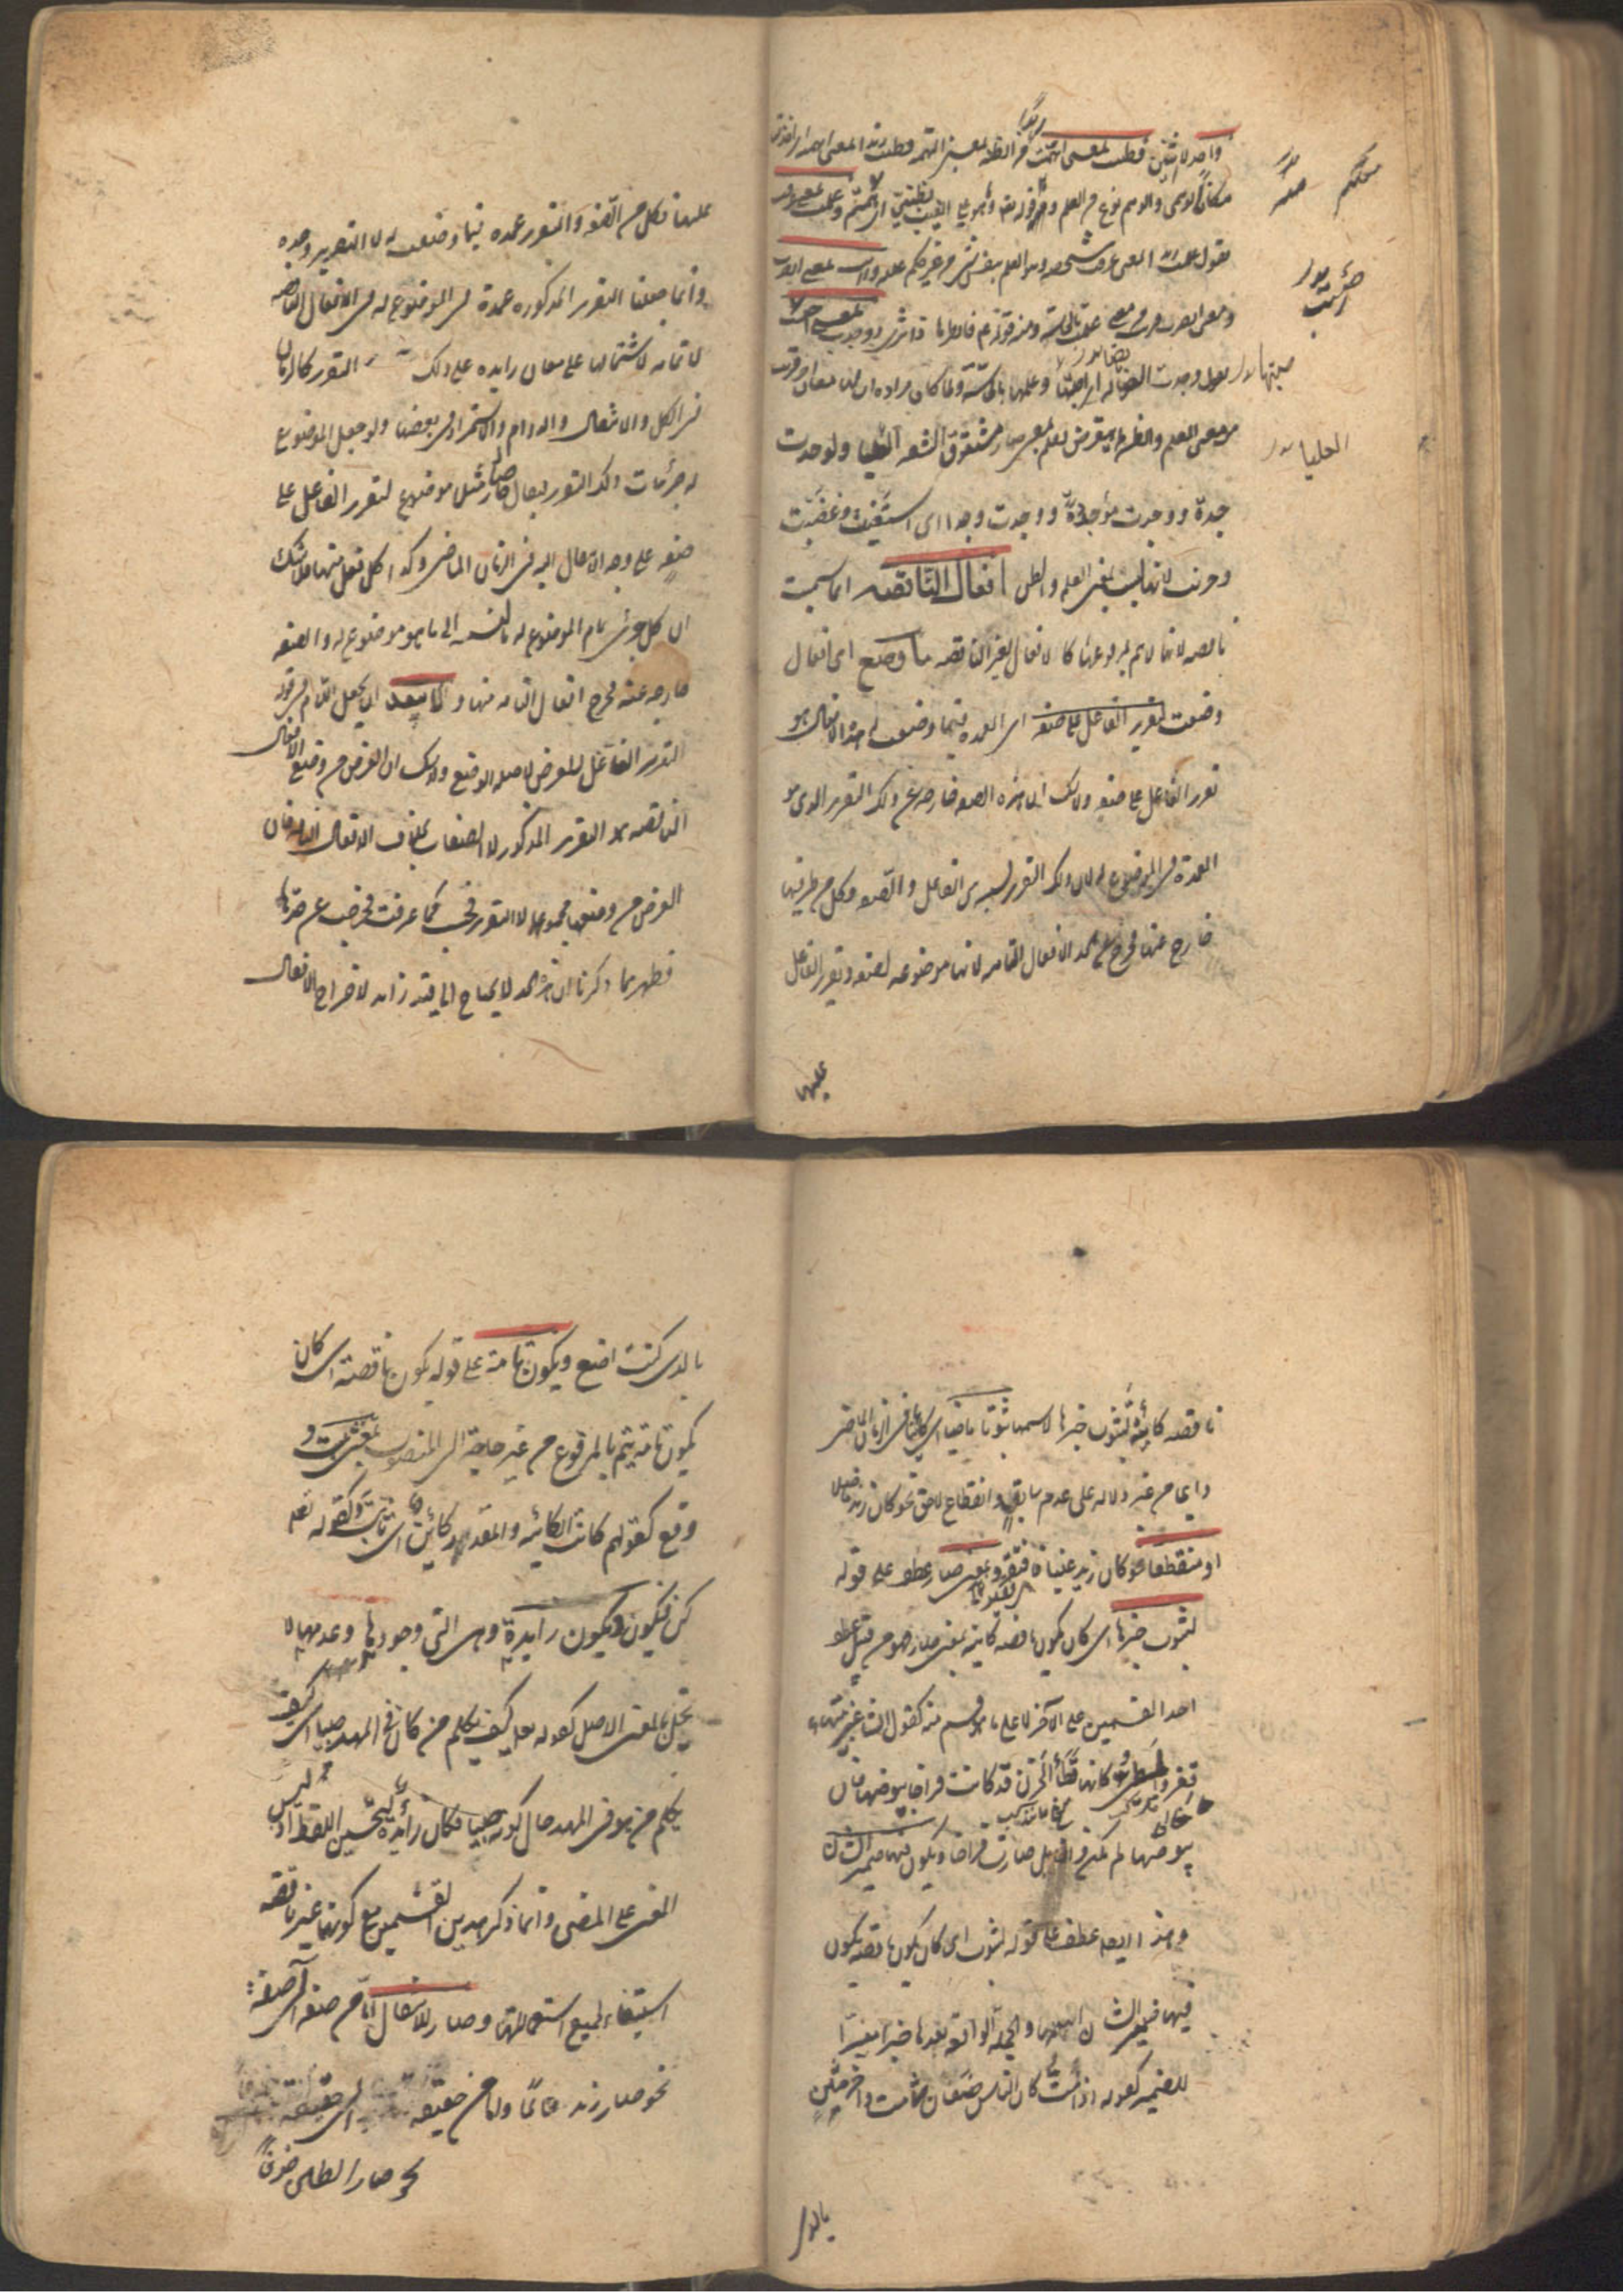 واحد لا يثنى فظننت بمعنى اتهمت من الظنة بمعنى التهمة فظننت زيدا بمعنى اتهمته اى اخذته
مكانا لوهمى والوهم نوع من العلم ومنه قوله تعالى وما هو على الغيب بظنين اى بمتهم وعلمت بمعنى عرفت
تقول علمت زيدا بمعنى عرفت شخصه وهو العلم بنفس شئ من غير حكم عليه ورايت بمعنى ابصرت
ومعنى ابصرت قريب من معنى علمت بالحاسة ومنه قوله تعالى فانظر ماذا ترى ووجدت بمعنى اصبت
تقول وجدت الضالة اى اصبتها وعلمتها بالحاسة ولما كان مراده ان لها معان اخر قريبة
من معنى العلم والظن لم يتعرض لعلم بمعنى صار مشقوق الشفة العليا ولوجدت
جدة ووجدت موجدة ووجدت وجدا اى استغنيت وغضبت
وحزنت لانها ليست بمعنى العلم والظن افعال الناقصة انما سميت
ناقصة لانها لا تتم بمرفوعها كالافعال الغير الناقصة ما وضع اى افعال
وضعت لتقرير الفاعل على صفة اى العمدة فيما وضعت له هذه الافعال هو
تقرير الفاعل على صفة ولا شك ان هذه الصفة خارجة عن ذلك التقرير الذى هو
العمدة فى الموضوع له لان ذلك التقرير نسبة بين الفاعل والصفة وكل من طرفيها
خارج عنها فخرج عن الحد الافعال التامة لانها موضوعة لصفة وتقرير الفاعل
عليها
محكم
اصبت
صبتها
العليا
عليها فكل من الصفة والتقرير عمدة فيما وضعت له لا التقرير وحده
وانما جعلنا التقرير المذكور عمدة فى الموضوع له فى الافعال الناقصة
لا تمامه لاشتمالها على معان زايدة على ذلك التقرير كالزمان
فى الكل والانتقال والدوام والاستمرار فى بعضها ولو جعل الموضوع
له جزئيات ذلك التقرير يقال صار مثلا موضوع لتقرير الفاعل على
صفة على وجه الانتقال اليه فى الزمان الماضى وكذا كل فعل منها فلا شك
ان كل جزئى تمام الموضوع له بالنسبة الى ما هو موضوع له والصفة
خارجة عنه فخرج افعال التامة منها و لا يبعد ان يجعل اللام فى قوله
لتقرير الفاعل للغرض لا صلة الوضع ولا شك ان الغرض من وضع الافعال
الناقصة هو التقرير المذكور لا الصفات بخلاف الافعال التامة فان
الغرض من وضعها مجموعهما لا التقرير فحسب كما عرفت فخرجت عن حدها
فظهر بما ذكرنا ان هذا الحد لا يحتاج الى قيد زايد لاخراج الافعال
ناقصة كائنة لثبوت خبرها لاسمها ثبوتا ماضيا اى كائنا فى الزمان الماضى
دايما من غير دلالة على عدم سابق وانقطاع لاحق نحو كان زيد فاضلا
او منقطعا نحو كان زيد غنيا فافتقر وبمعنى صار عطف على قوله
لثبوت خبرها اى كان تكون ناقصة كائنة بمعنى صار فهو من قبيل عطف
احد القسمين على الآخر لا على ما هو قسم منه كقول الشاعر بتيهاء
قفر والمطى كانها قطا الحزن قد كانت فراخا بيوضها فان
بيوضها لم تكن فراخا بل صارت فراخا ويكون فيها ضمير الشان
وهذا ايضا عطف على قوله لثبوت اى كان تكون ناقصة يكون
فيها ضمير الشان اسما لها والجملة الواقعة بعدها خبرا مفسرا
للضمير كقوله اذا مت كان الناس صنفان شامت وآخر مثن
بالذى
بالذى كنت اصنع ويكون تامة على قوله تكون ناقصة اى كان
تكون تامة يتم بالمرفوع من غير حاجة الى المنصوب بمعنى ثبت و
وقع كقولهم كانت الكائنة والمقدور كائن اى ثابت وكقوله تعالى
كن فيكون ويكون زايدة وهى التى وجودها وعدمها لا
يخل بالمعنى الاصل كقوله تعالى كيف نكلم من كان فى المهد صبيا اى كيف
نكلم من هو فى المهد حال كونه صبيا فكان زايدة لتحسين اللفظ اذ ليس
المعنى على المضى وانما ذكر هذين القسمين مع كونهما غير ناقصة
استيفاء لجميع استعمالاتها وصار للانتقال اما من صفة الى صفة
نحو صار زيد عالما واما من حقيقة الى حقيقة
نحو صار الطين خزفا